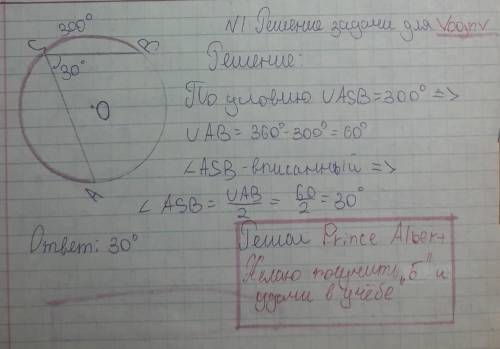 N1 Решение задачи для Vbapv
300°
S B
30° Решение:
По условию ∪ASB=300° =>
O
∪AB= 360°-300°=60°
∠ASB-вписанный =>
A
∠ASB= ∪AB/2 = 60/2 = 30°
Ответ: 30°
Решал Prince Albert
Желаю получить „5" и
удачи в учёбе